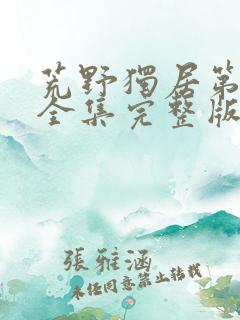 荒野獨居第
全集完整版
張雅涵
未經同意禁止轉載